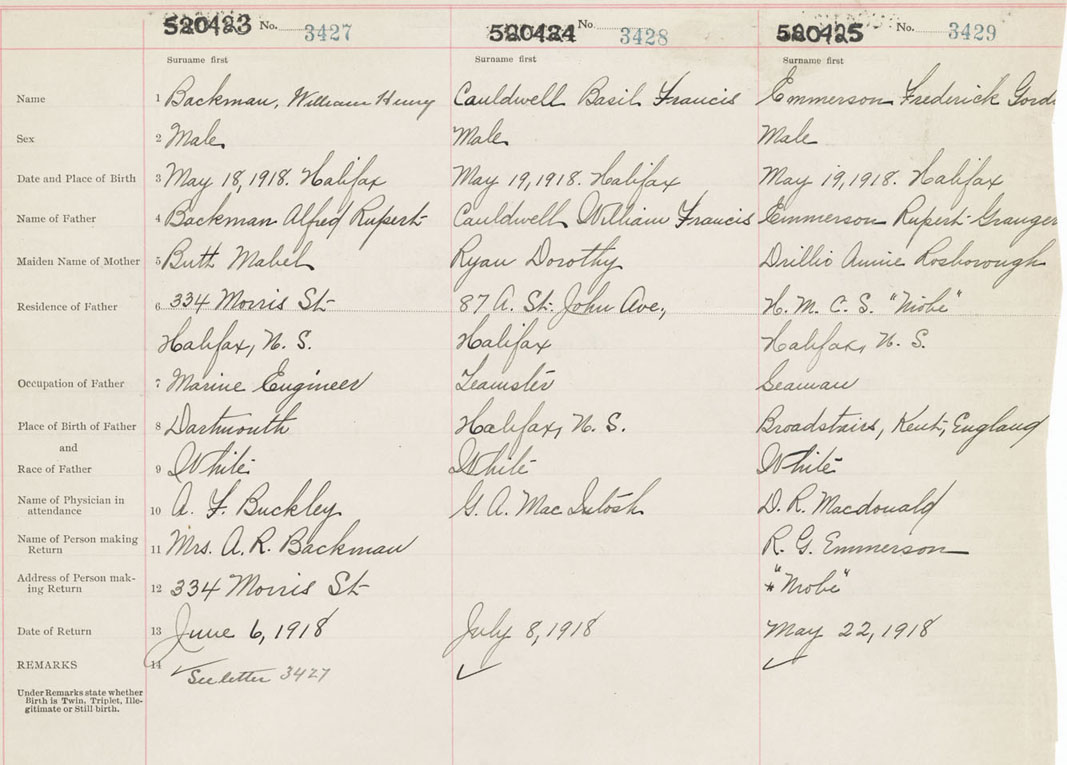 520423 No. 3427 520424 No. 3428 520425 No. 3429
Surname first Surname first Surname first
Name 1 Backman, William Henry Cauldwell Basil Francis Emmerson Frederick Gord
Sex 2 Male Male Male
Date and Place of Birth 3 May 18, 1918. Halifax May 19, 1918. Halifax May 19, 1918. Halifax
Name of Father 4 Backman Alfred Rupert Cauldwell William Francis Emmerson Rupert Granger
Maiden Name of Mother 5 Butt Mabel Ryan Dorothy Drillio Annie Rosborough
Residence of Father 6 334 Morris St 87 A. St. John Ave., H. M. C. S. "Niobe"
Halifax, N. S. Halifax Halifax, N. S.
Occupation of Father 7 Marine Engineer Teamster Seaman
Place of Birth of Father 8 Dartmouth Halifax, N. S. Broadstairs, Kent, England
and
Race of Father 9 White White White
Name of Physician in
attendance 10 A. F. Buckley G. A. MacIntosh D. R. Macdonald
Name of Person making
Return 11 Mrs. A. R. Backman R. G. Emmerson
Address of Person mak-
ing Return 12 334 Morris St "Niobe"
Date of Return 13 June 6, 1918 July 8, 1918 May 22, 1918
REMARKS 14 ✓ See letter 3427 ✓ ✓
Under Remarks state whether
Birth is Twin, Triplet, Ille-
gitimate or Still birth.